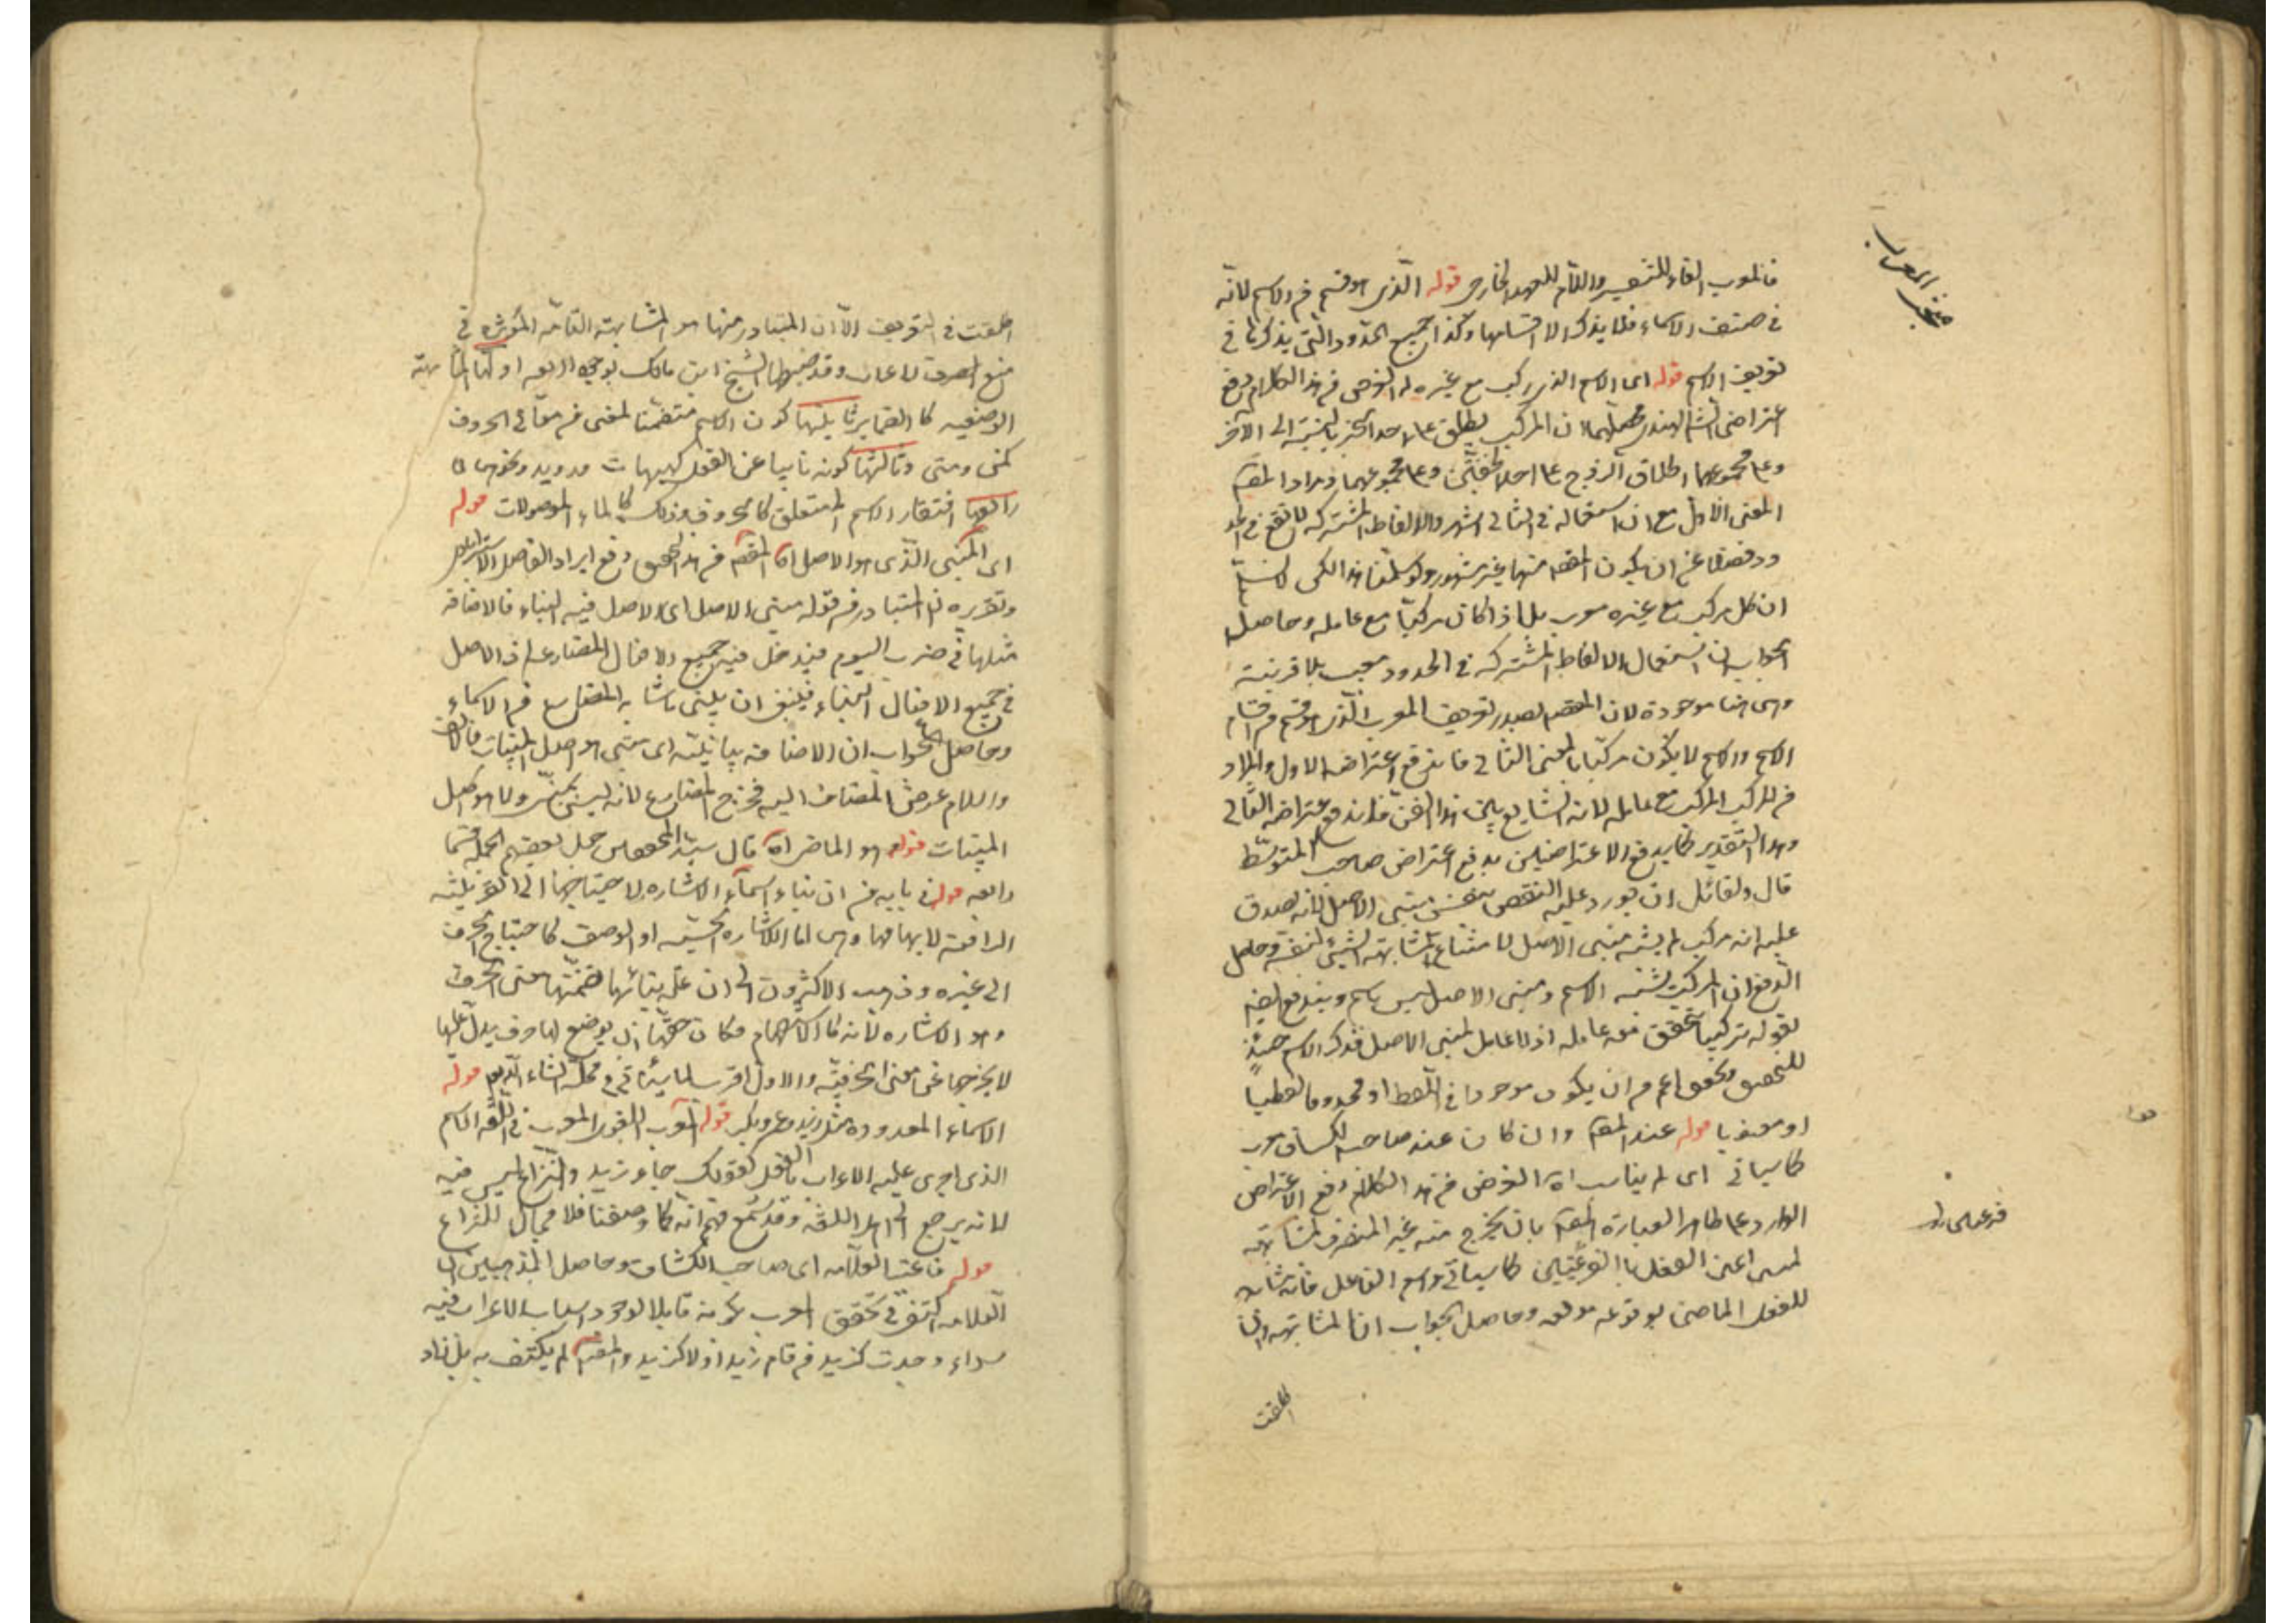 فالمعرب الفاء للتفسير واللام للعهد الخارجى قوله الذى هو قسم من الاسم لانه
فى صنف الاسماء فلا يذكر الا اقسامها وكذا جميع الحدود التى يذكرها فى
تعريف الاسم قوله اى الاسم الذى ركب مع غيره له الغرض من هذا الكلام دفع
اعتراض الشارح الهندى ان المركب يطلق على احد الجزئين بالنسبة الى الآخر
وعلى مجموعهما اطلاق الزوج على احد الخفين وعلى مجموعهما ومراد المصنف
المعنى الاول مع ان استعماله فى الثانى اشهر والالفاظ المشتركه لا تقع فى الحد
وفضلا عن ان يكون المقصود منها غير مشهور ولو سلمنا هذا لكن لا نسلم
ان كل مركب مع غيره معرب بل اذا كان مركبا مع عامله وحاصل
الجواب ان استعمال الالفاظ المشتركه فى الحدود معيب بلا قرينة
وهى هنا موجودة لان المصنف بصدد تعريف المعرب الذى هو قسم من اقسام
الاسم والاسم لا يكون مركبا بالمعنى الثانى فاندفع اعتراضه الاول والمراد
من المركب المركب مع عامله لانه الشايع بين هذا الفن فاندفع اعتراضه الثانى
وبهذا التقدير كما يدفع الاعتراضين يدفع اعتراض صاحب المتوسط
قال ولقائل ان يورد عليه النقض بنفس مبنى الاصل لانه يصدق
عليه انه مركب لم يشبه مبنى الاصل لامتناع مشابهة الشئ لنفسه وحاصل
الدفع ان المركب يشبه الاسم ومبنى الاصل ليس باسم ويندفع ايضا
بقوله تركيبا يتحقق معه عامله اذ لا عامل لمبنى الاصل فذكر الاسم حينئذ
للتحقيق وتحقق اعم من ان يكون موجودا فى اللفظ او محذوفا لفظيا
او معنويا قوله عند المصنف وان كان عند صاحب الكشاف معرب
كما سياتى اى لم يناسب اه الغرض من هذا الكلام دفع الاعتراض
الوارد على ظاهر العبارة المصنف بان يخرج منه غير المنصرف لمشابهته
لمبنى اعنى الفعل بالفرعيتين كما سياتى واسم الفاعل فانه شابه
للفعل الماضى بوقوعه موقعه وحاصل الجواب ان المشابهة وان
اطلقت
اطلقت فى التعريف الا ان المتبادر منها هو المشابهة التامة المؤثره فى
منع الصرف للاعراب وقد ضبطها الشيخ ابن مالك بوجوه اربعه اولها المشابهة
الوضعيه كالضماير ثانيتها كون الاسم متضمنا لمعنى من معانى الحروف
كمن ومتى وثالثتها كونه نائبا عن الفعل كهيهات ورويد ونحوهما
رابعها افتقار الاسم المتعلق كالحروف وذلك كاسماء الموصولات قوله
اى المبنى الذى هو الاصل اه المقصود من هذا التحقيق دفع ايراد الفاضل
وتقريره ان المتبادر من قوله مبنى الاصل اى الاصل فيه البناء فالاضافة
مثلها فى ضرب اليوم فيدخل فيه جميع الافعال المضارع اذ الاصل
فى جميع الافعال البناء فينبغى ان يبنى ما شابه المضارع من الاسماء
وحاصل الجواب ان الاضافة بيانيته اى مبنى هو اصل المبنيات فالالف
واللام عوض المضاف اليه فخرج المضارع لانه ليس بمبنى ولا هو اصل
المبنيات قوله هو الماضى اه قال سيد المحققين جعل بعضهم الجملة قسما
رابعه قوله فى بابه من ان بناء اسماء الاشاره لاحتياجها الى القرينته
الرافعة لابهامها وهى اما الاشاره الحسيه او الوصف كاحتياج الحرف
الى غيره وذهب الاكثرون الى ان علة بنائها تضمنها معنى الحرف
وهو الاشاره لانه كالاستفهام فكان حقها ان يوضع لها حرف يدل عليها
لا يخرجها عن معنى الحرفية والاول اقرب لما سيأتى فى محله انشاء الله قوله
الاسماء المعدوده مثل زيد وعمرو وبكر قوله المعرب اللغوى المعرب فى اللغه الاسم
الذى اجرى عليه الاعراب بالفعل كقولك جاء زيد والنزاع ليس فيه
لانه يرجع الى اهل اللغة وقد سمع منهم انه كما وصفنا فلا مجال للنزاع
قوله فاعتبر العلامه اى صاحب الكشاف وحاصل المذهبين ان
العلامه اكتفى فى تحقق المعرب بكونه قابلا لوجود اسباب الاعراب فيه
سواء وجدت كزيد فى قام زيد او لا كزيد والمصنف لم يكتف به بل زاد